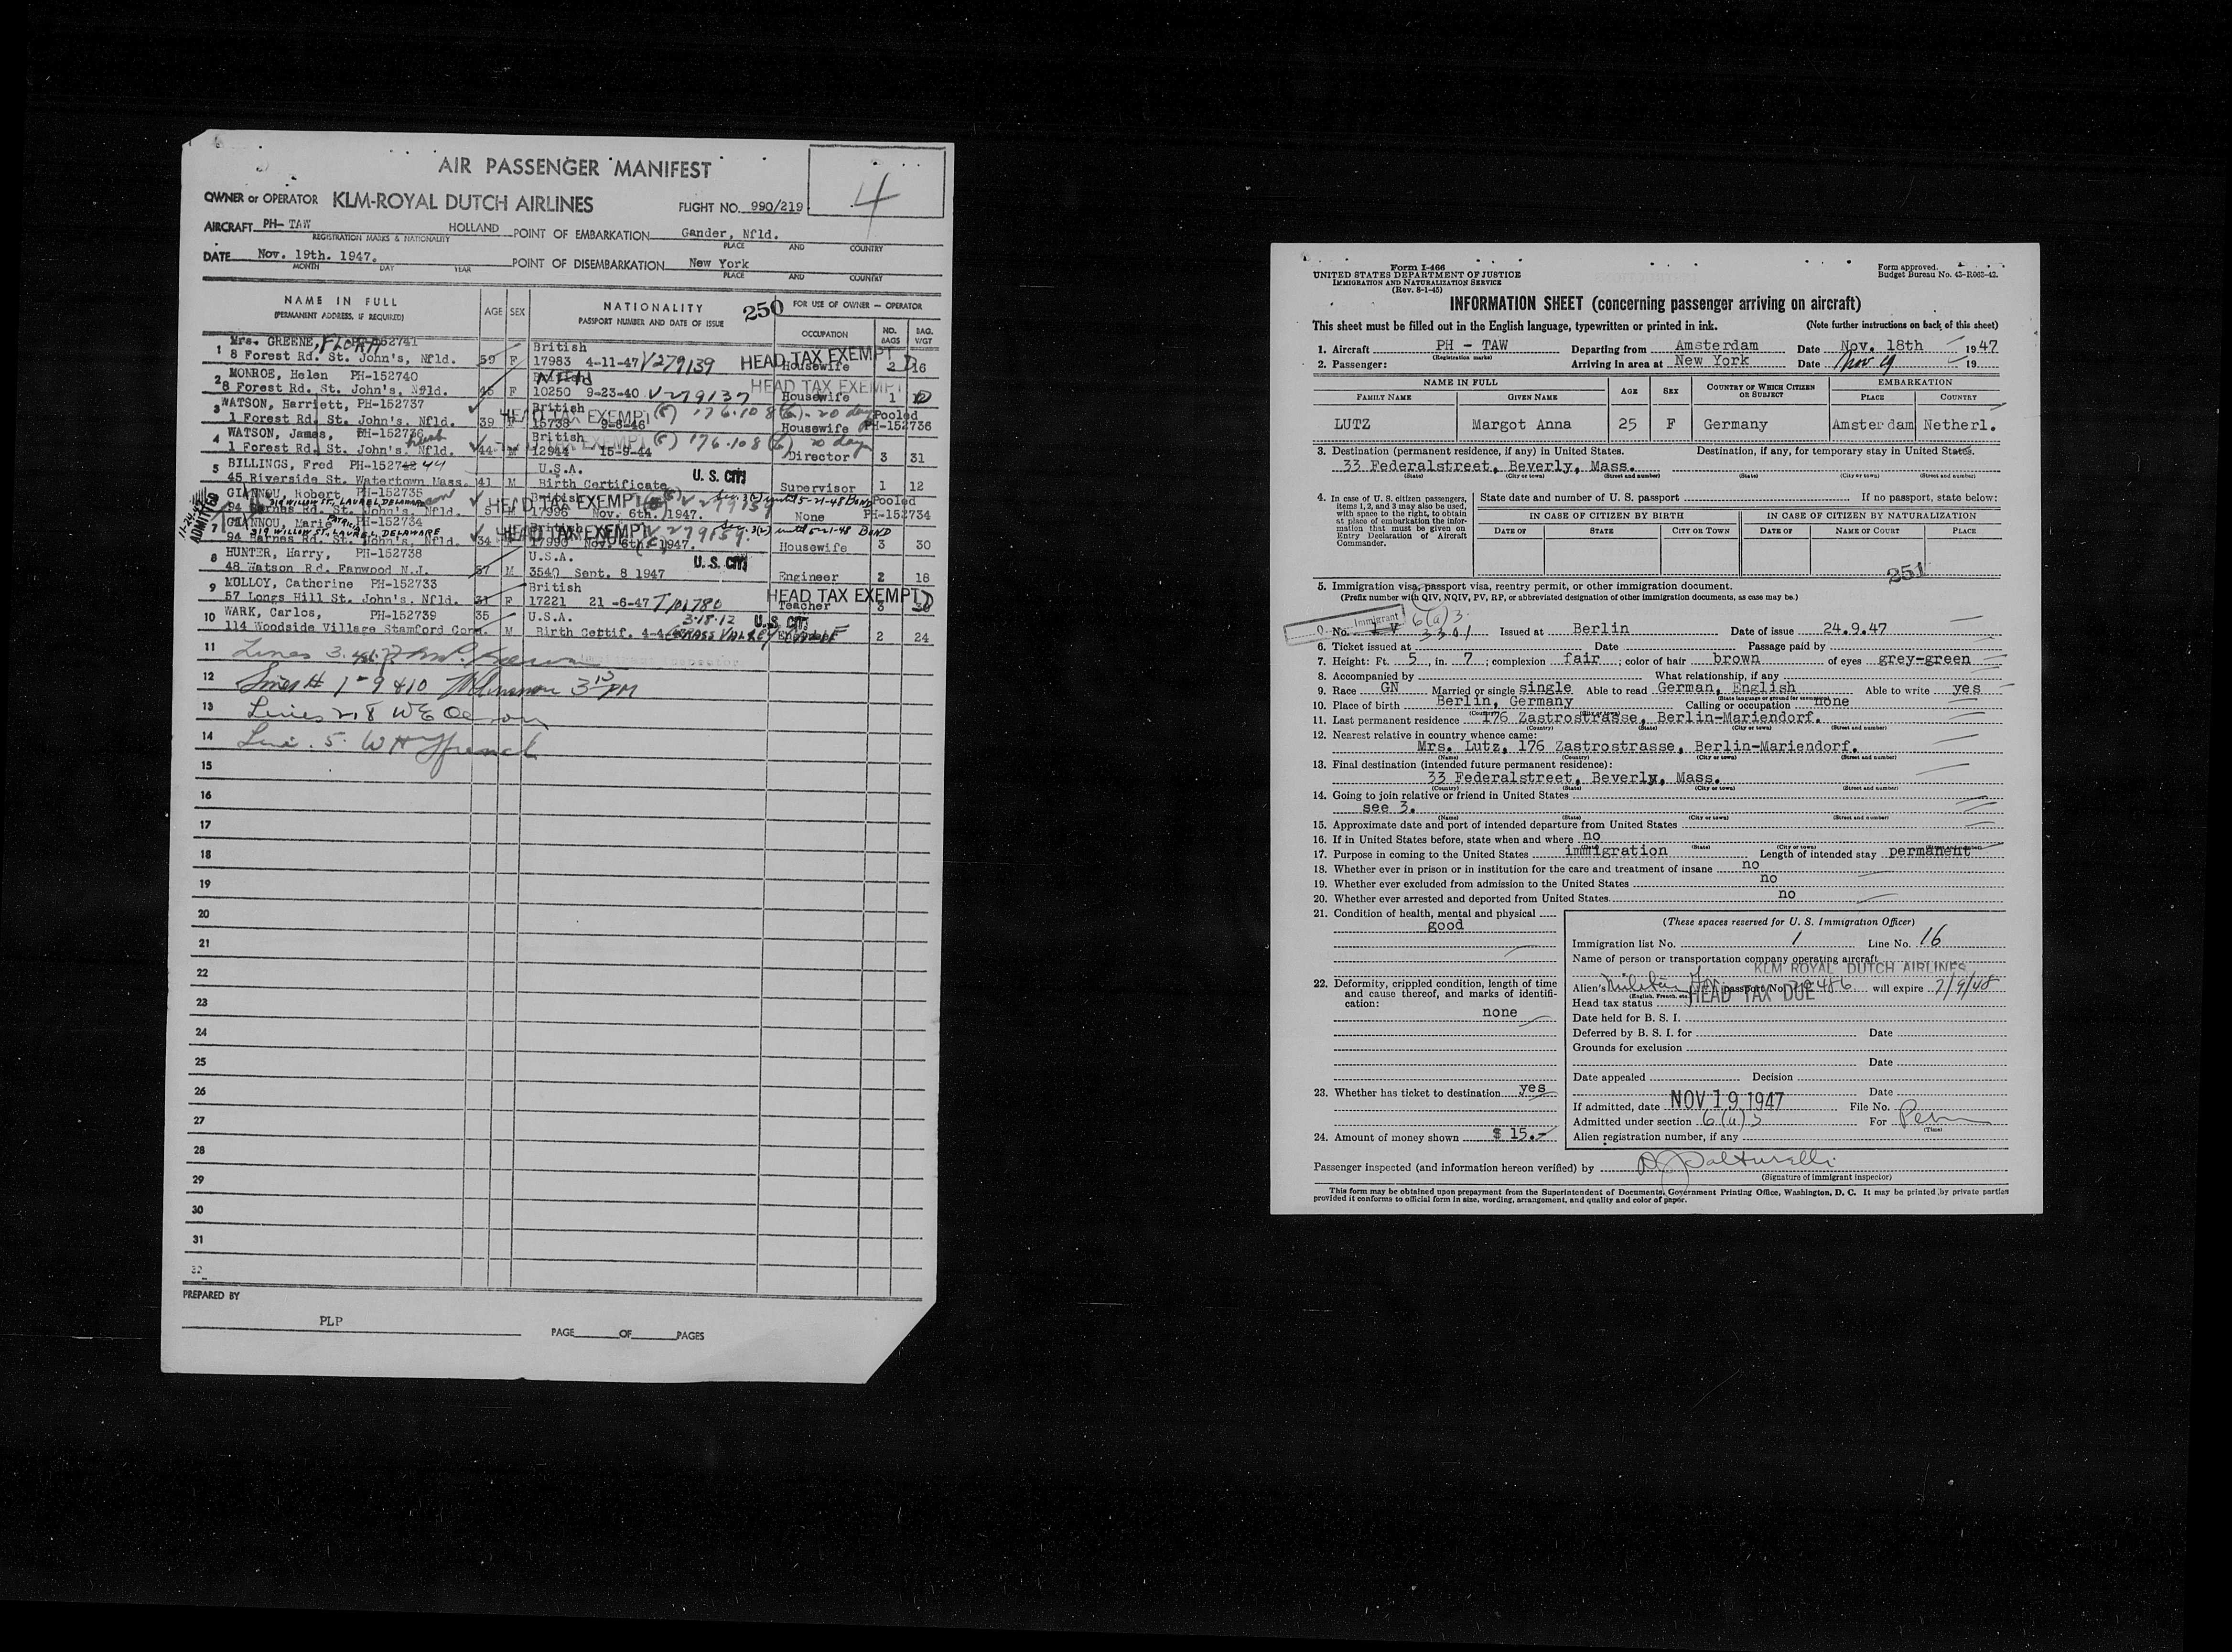 AIR PASSENGER MANIFEST
4
OWNER or OPERATOR KLM-ROYAL DUTCH AIRLINES FLIGHT NO. 990/219
AIRCRAFT PH- TAW HOLLAND POINT OF EMBARKATION Gander, Nfld.
REGISTRATION MARKS & NATIONALITY PLACE AND COUNTRY
DATE Nov. 19th. 1947. POINT OF DISEMBARKATION New York
MONTH DAY YEAR PLACE AND COUNTRY
NAME IN FULL AGE SEX NATIONALITY 250 FOR USE OF OWNER - OPERATOR
(PERMANENT ADDRESS, IF REQUIRED) PASSPORT NUMBER AND DATE OF ISSUE OCCUPATION NO. BAGS BAG. WGT
1 Mrs. GREENE, FLORA PH-152741 British
8 Forest Rd. St. John's, Nfld. 59 F 17983 4-11-47 V279139 HEAD TAX EXEMPT Housewife 2 16
2 MONROE, Helen PH-152740 Nfld
8 Forest Rd. St. John's, Nfld. 45 F 10250 9-23-40 V279137 HEAD TAX EXEMPT Housewife 1
3 WATSON, Harriett, PH-152737 British HEAD TAX EXEMPT 176.108(6) - 20 days Pooled
1 Forest Rd. St. John's, Nfld. 39 F 15738 9-6-46 Housewife PH-152736
4 WATSON, James, PH-152736 husb British HEAD TAX EXEMPT 176.108(6) 20 days
1 Forest Rd. St. John's, Nfld. 44 M 12944 15-9-44 Director 3 31
5 BILLINGS, Fred PH-152742 44 U.S.A. U. S. CIT.
45 Riverside St. Watertown Mass. 41 M Birth Certificate Supervisor 1 12
GIANNOU, Robert PH-152735 son British HEAD TAX EXEMPT V279159 Sec. 3(2) until 5-21-48 BOND Pooled
319 WILLOW ST. LAUREL DELAWARE
94 Barnes Rd. St. John's, Nfld. 5 M 17996 Nov. 6th. 1947. None PH-152734
11-24-47 ADMITTED
7 GIANNOU, Marie PATRICIA PH-152734 British HEAD TAX EXEMPT V279159 Sec. 3(2) until 5-21-48 BOND
319 WILLOW ST. LAUREL, DELAWARE
94 Barnes Rd. St. John's, Nfld. 34 F 17990 Nov. 6th. 1947. Housewife 3 30
8 HUNTER, Harry, PH-152738 U.S.A. U. S. CIT.
48 Watson Rd. Fanwood N.J. 57 M 3540 Sept. 8 1947 Engineer 2 18
9 MULLOY, Catherine PH-152733 British HEAD TAX EXEMPT
57 Longs Hill St. John's, Nfld. 31 F 17221 21 -6-47 Teacher 3 30
10 WARK, Carlos, PH-152739 35 U.S.A. 3-18-12 U. S. CIT.
114 Woodside Village Stamford Conn. M Birth Certif. GRASS VALLEY 2 24
11 Lines 3.
12 Lines # 1-9 & 10 3 15 PM
13 Lines 2, 8 WE
14 Line 5 W H French
15
16
17
18
19
20
21
22
23
24
25
26
27
28
29
30
31
32
PREPARED BY
PLP
PAGE OF PAGES
Form I-466
UNITED STATES DEPARTMENT OF JUSTICE
IMMIGRATION AND NATURALIZATION SERVICE
(Rev. 8-1-45)
Form approved.
Budget Bureau No. 43-R063-42.
INFORMATION SHEET (concerning passenger arriving on aircraft)
This sheet must be filled out in the English language, typewritten or printed in ink. (Note further instructions on back of this sheet)
1. Aircraft PH - TAW Departing from Amsterdam Date Nov. 18th 1947
(Registration marks)
2. Passenger: Arriving in area at New York Date Nov 19 19
NAME IN FULL AGE SEX COUNTRY OF WHICH CITIZEN OR SUBJECT EMBARKATION
FAMILY NAME GIVEN NAME PLACE COUNTRY
LUTZ Margot Anna 25 F Germany Amsterdam Netherl.
3. Destination (permanent residence, if any) in United States. Destination, if any, for temporary stay in United States.
33 Federalstreet, Beverly, Mass.
(State) (City or town) (Street and number) (State) (City or town) (Street and number)
4. In case of U. S. citizen passengers, items 1, 2, and 3 may also be used, with space to the right, to obtain at place of embarkation the information that must be given on Entry Declaration of Aircraft Commander.
State date and number of U. S. passport If no passport, state below:
IN CASE OF CITIZEN BY BIRTH IN CASE OF CITIZEN BY NATURALIZATION
DATE OF STATE CITY OR TOWN DATE OF NAME OF COURT PLACE
251
5. Immigration visa, passport visa, reentry permit, or other immigration document.
(Prefix number with QIV, NQIV, PV, RP, or abbreviated designation of other immigration documents, as case may be.)
Immigrant 6(a)3
No. I V 3301 Issued at Berlin Date of issue 24.9.47
6. Ticket issued at Date Passage paid by
7. Height: Ft. 5, in. 7; complexion fair; color of hair brown of eyes grey-green
8. Accompanied by What relationship, if any
9. Race GN Married or single single Able to read German, English Able to write yes
(State language or ground for exemption)
10. Place of birth Berlin, Germany Calling or occupation none
(Country) (City or town)
11. Last permanent residence 176 Zastrostrasse, Berlin-Mariendorf.
(Country) (State) (City or town) (Street and number)
12. Nearest relative in country whence came:
Mrs. Lutz, 176 Zastrostrasse, Berlin-Mariendorf.
(Name) (Country) (City or town) (Street and number)
13. Final destination (intended future permanent residence):
33 Federalstreet, Beverly, Mass.
(Country) (State) (City or town) (Street and number)
14. Going to join relative or friend in United States
see 3.
(Name) (State) (City or town) (Street and number)
15. Approximate date and port of intended departure from United States
16. If in United States before, state when and where no
(Date) (State) (City or town) (Street and number)
17. Purpose in coming to the United States immigration Length of intended stay permanent
18. Whether ever in prison or in institution for the care and treatment of insane no
19. Whether ever excluded from admission to the United States no
20. Whether ever arrested and deported from United States no
21. Condition of health, mental and physical
good
22. Deformity, crippled condition, length of time and cause thereof, and marks of identification:
none
23. Whether has ticket to destination yes
24. Amount of money shown $ 15.-
(These spaces reserved for U. S. Immigration Officer)
Immigration list No. 1 Line No. 16
Name of person or transportation company operating aircraft
KLM ROYAL DUTCH AIRLINES
Alien's passport No. will expire 7/9/48
(English, French, etc.)
Head tax status HEAD TAX DUE
Date held for B. S. I.
Deferred by B. S. I. for Date
Grounds for exclusion
Date
Date appealed Decision
Date
If admitted, date NOV 19 1947 File No.
Admitted under section 6(a)3 For Perm
(Time)
Alien registration number, if any
Passenger inspected (and information hereon verified) by
(Signature of immigrant inspector)
This form may be obtained upon prepayment from the Superintendent of Documents, Government Printing Office, Washington, D. C. It may be printed by private parties
provided it conforms to official form in size, wording, arrangement, and quality and color of paper.